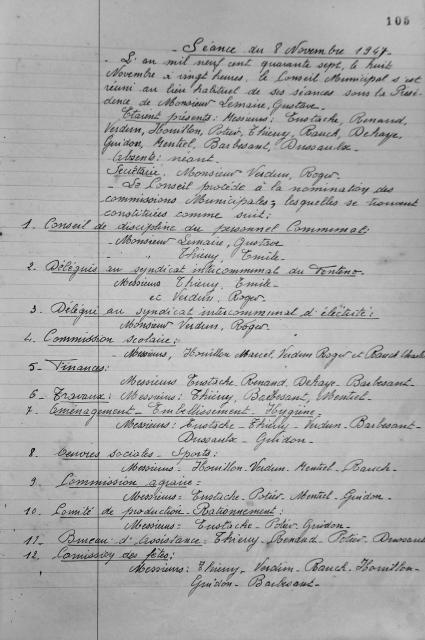 105
- Séance du 8 Novembre 1947 -
- L'an mil neuf cent quarante sept, le huit
Novembre à vingt heures, le Conseil Municipal s'est
réuni au lieu habituel de ses séances sous la Prési-
dence de Monsieur Lemaire, Gustave -
Etaient présents: Messieurs: Eustache, Renaud,
Verdun, Houillon, Potier, Thiény, Rauch, Dehaye,
Guidon, Mentiel, Barbesant, Dussaulx -
Absents: néant.
Secrétaire, Monsieur Verdun, Roger -
- Le Conseil procède à la nomination des
commissions Municipales, lesquelles se trouvent
constituées comme suit:
1. Conseil de discipline du personnel Communal:
- Monsieur Lemaire, Gustave
- " Thiény, Emile -
2. Délégués au syndicat intercommunal du
Messieurs Thiény, Emile -
et Verdun, Roger -
3. Délégué au syndicat intercommunal d'éléctricité:
Monsieur Verdun, Roger -
4. Commission scolaire:
- Messieurs, Houillon Marcel, Verdun Roger et Rauch Charles
5 - Finances:
Messieurs Eustache, Renaud, Dehaye - Barbesant -
6 - Travaux: Messieurs: Thiény, Barbesant, Mentiel -
7 - Aménagement - Embellissement - Hygiène -
Messieurs: Eustache - Thiény - Verdun - Barbesant -
Dussaulx - Guidon -
8. Oeuvres sociales - Sports:
Messieurs - Houillon - Verdun - Mentiel - Rauch -
9. Commission agraire:
Messieurs: Eustache - Potier - Mentiel - Guidon -
10. Comité de production - Rationnement:
Messieurs: Eustache - Potier - Guidon -
11. Bureau d'Assistance: Thiény - Renaud - Potier - Dussaulx
12. Comission des fêtes:
Messieurs: Thiény - Verdun - Rauch - Houillon -
Guidon - Barbesant -